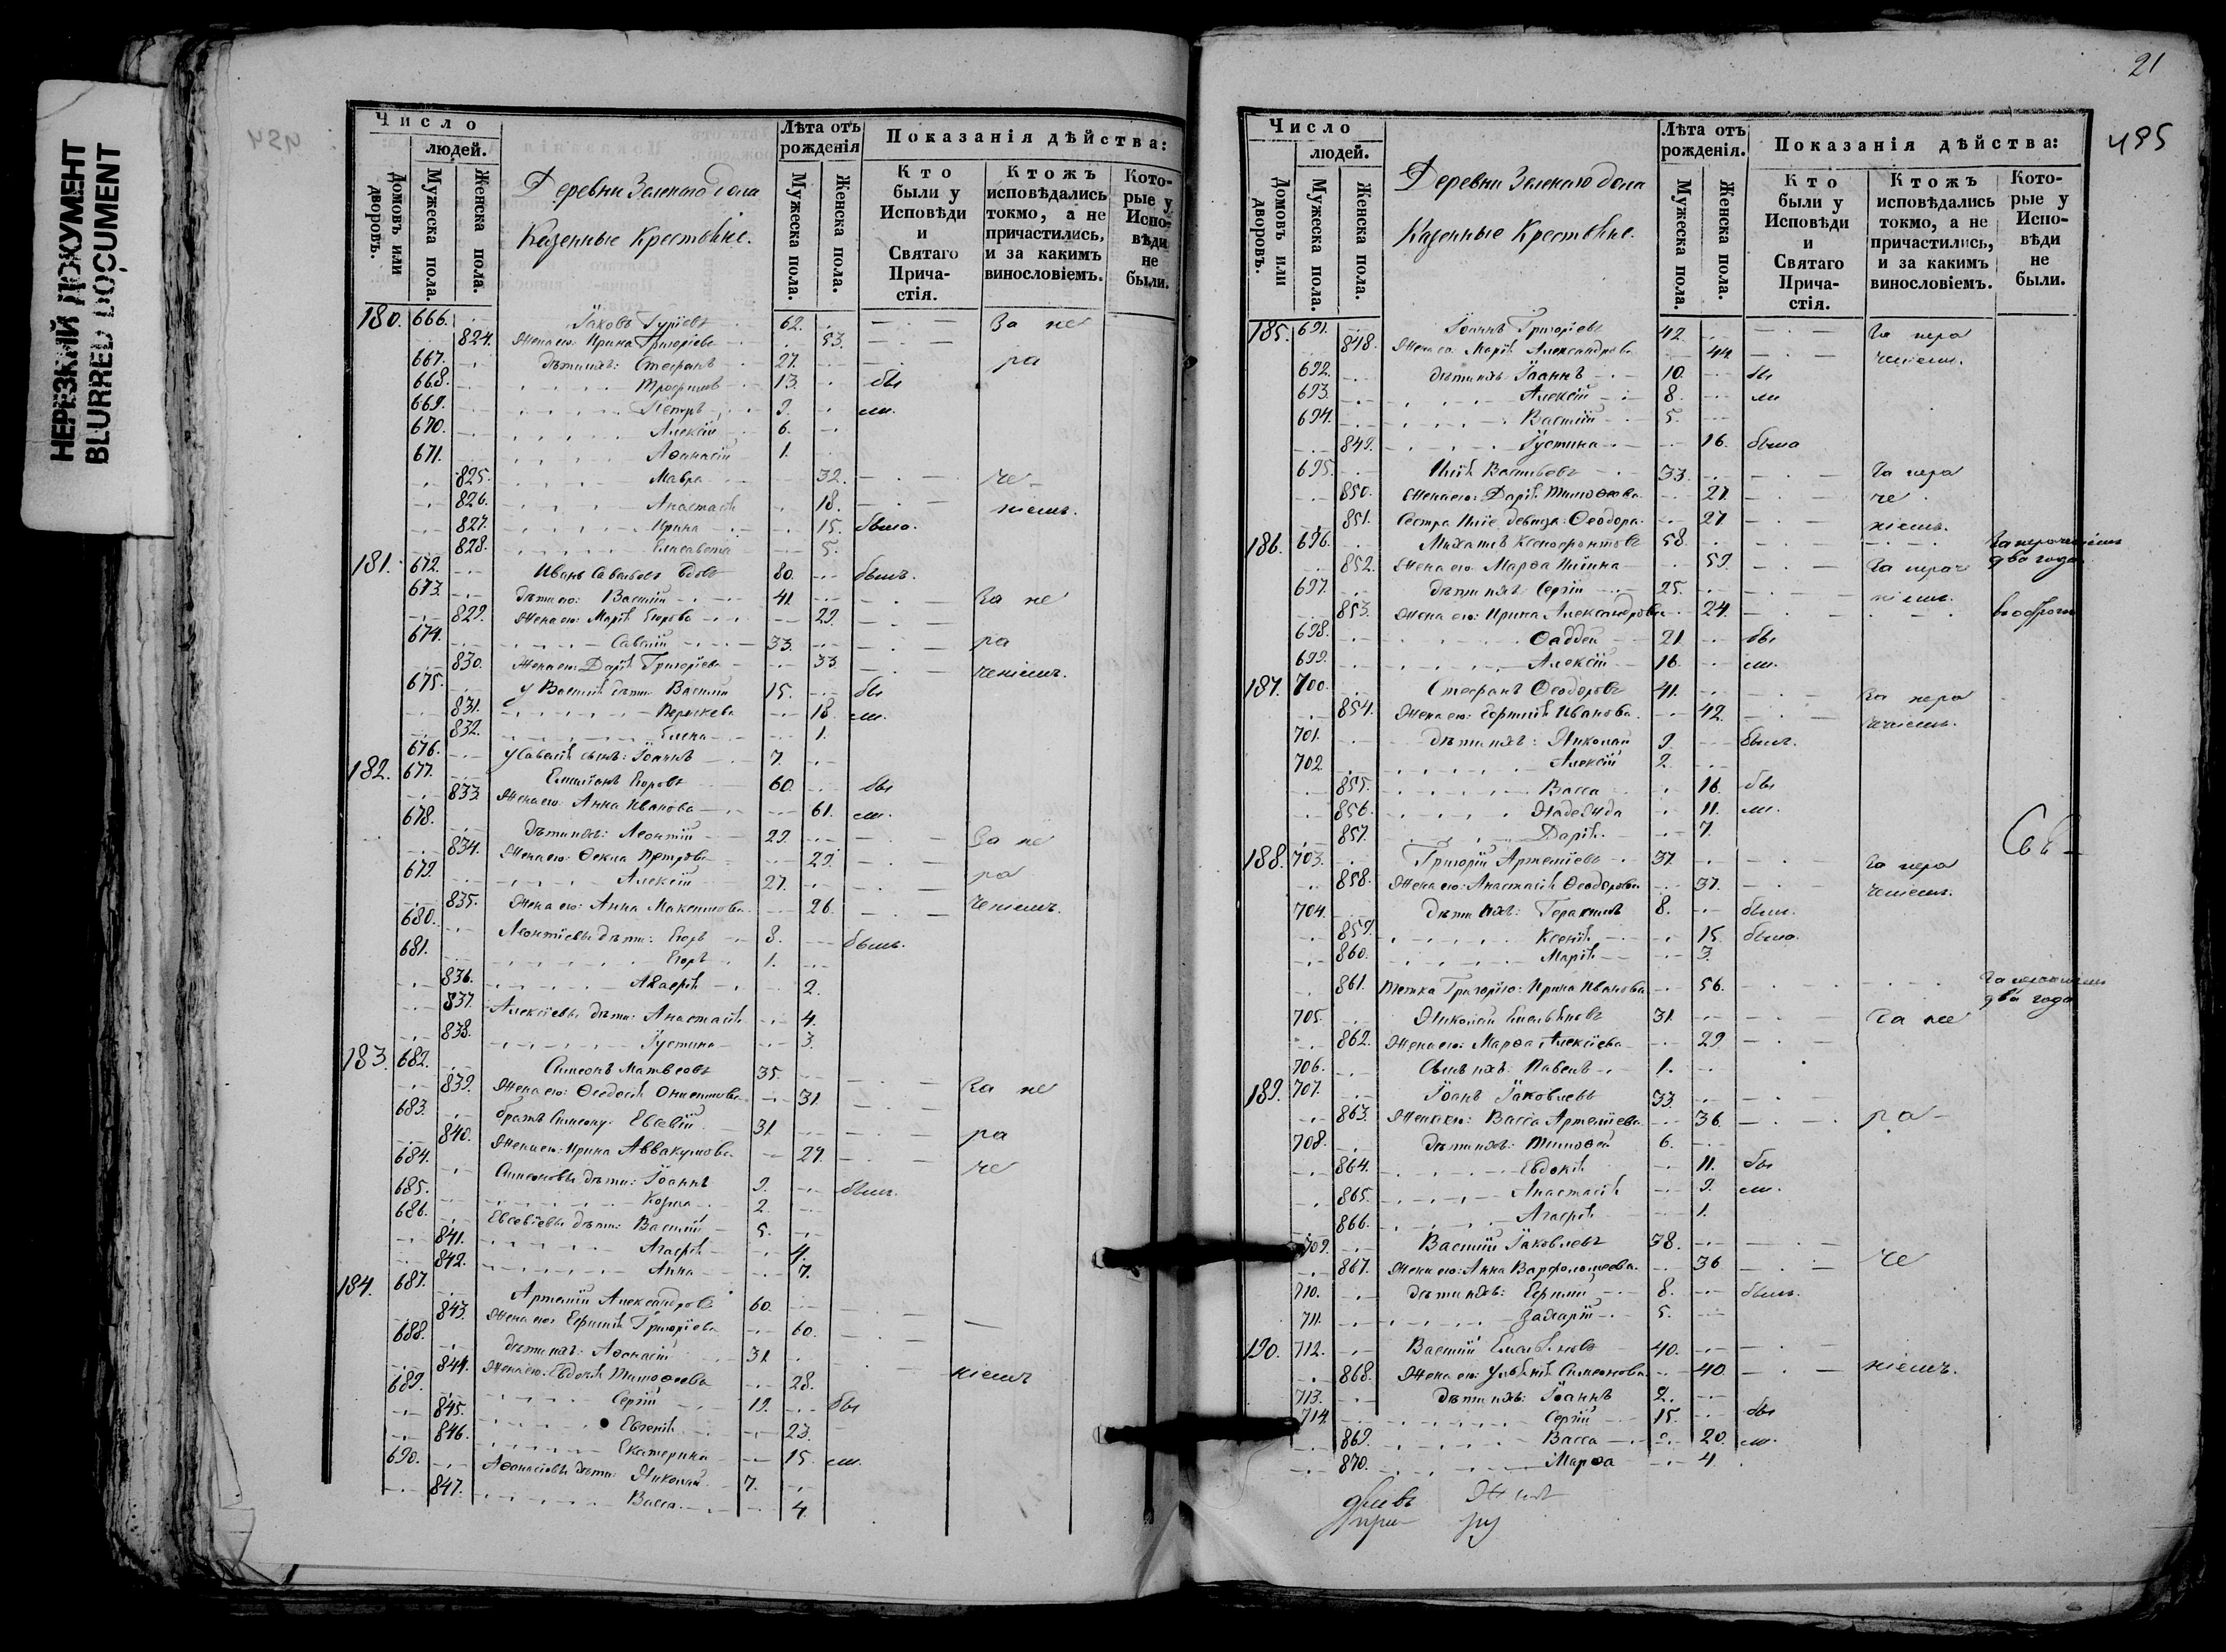 НЕРЕЗКИЙ ДОКУМЕНТ
BLURRED DOCUMENT
Число
людей.
Домовъ или дворовъ.
Мужеска пола.
Женска пола.
Деревни Зеленаго дола
Казенные Крестьяне.
Лѣта отъ рожденія
Мужеска пола.
Женска пола.
Показанія дѣйства:
Кто были у Исповѣди и Святаго Причастія.
Ктожъ исповѣдались токмо, а не причастились, и за какимъ винословіемъ.
Которые у Исповѣди не были.
180. 666. Іаковъ Гуріевъ 62. За не
824. Жена его: Ирина Григоріева 53.
667. дѣти ихъ: Стефанъ 27. ра
668. Трофимъ 13. бы
669. Петръ 9. ли.
670. Алексій 6.
671. Аѳанасій 1.
825. Мавра 32. че
826. Анастасія 18. ніемъ.
827. Ирина 15. была.
828. Елисавета 5.
181. 672. Иванъ Савельевъ вдовъ 80. былъ.
673. дѣти его: Василій 41. За не
829. Жена его: Марія Егорова 29.
674. Савелій 33. ра
830. Жена его: Дарія Григоріева 33. ченіемъ.
675. у Василія дѣти: Василій 15. бы
831. 18. ли.
832. Елена 1.
676. у Савелія сынъ: Іоаннъ 7.
182. 677. Емиліанъ Егоровъ 60. бы
833. Жена его: Анна Иванова 61. ли.
678. дѣти ихъ: Леонтій 29. За не
834. Жена его: Ѳекла Петрова 29. ра
679. Алексій 27. ченіемъ.
835. Жена его: Анна Максимова 26.
680. Леонтіевы дѣти: Егоръ 8. былъ.
681. Егоръ 1.
836. Агафія 2.
837. Алексіевы дѣти: Анастасія 4.
838. Іустина 3.
183. 682. Симеонъ Матвеевъ 35. За не
839. Жена его: Ѳеодосія Онисимова 31.
683. братъ Симеону: Евсевій 31. ра
840. Жена его: Ирина Аввакумова 29. че
684. Симеоновы дѣти: Іоаннъ 9. былъ.
685. Козма 2.
686. Евсевіевы дѣти: Василій 5.
841. Агафія 4.
842. Анна 7.
184. 687. Артемій Александровъ 60.
843. Жена его: Евфимія Григоріева 60.
688. дѣти ихъ: Аѳанасій 31.
844. Жена его: Евдокія Тимоѳеева 28. ніемъ
689. Сергій 19. бы
845. Евгенія 23.
846. Екатерина 15. ли.
690. Аѳанасіевы дѣти: Николай 7.
847. Васса 4.
21
495
Число
людей.
Домовъ или дворовъ.
Мужеска пола.
Женска пола.
Деревни Зеленаго дола
Казенные Крестьяне.
Лѣта отъ рожденія.
Мужеска пола.
Женска пола.
Показанія дѣйства:
Кто были у Исповѣди и Святаго Причастія.
Ктожъ исповѣдались токмо, а не причастились, и за какимъ винословіемъ.
Которые у Исповѣди не были.
185. 691. Іоаннъ Григоріевъ 42. За нера
848. Жена его: Марія Александрова 44. ченіемъ.
692. дѣти ихъ: Іоаннъ 10. бы
693. Алексій 8. ли
694. Василій 5.
849. Іустина 16. была
695. Илія Васильевъ 33. За нера
850. Жена его: Дарія Тимоѳеева 27. че
851. Сестра Иліе девица: Ѳеодора 27 ніемъ.
186. 696. Михаилъ Ксенофонтовъ 58. За нераченіемъ два года
852. Жена его: Марѳа Ильина 59. За нераче
697. дѣти ихъ: Сергій 25. ніемъ.
853. Жена его: Ирина Александрова 24.
698. Ѳаддей 21. бы
699. Алексій 16. ли.
187. 700. Стефанъ Ѳеодоровъ 41. За нера
854. Жена его: Евфимія Иванова 42. ченіемъ.
701. дѣти ихъ: Николай 9. былъ.
702. Алексій 2.
855. Васса 16. бы
856. Надежда 11. ли.
857. Дарія 7.
188. 703. Григорій Артеміевъ 37. За нера
858. Жена его: Анастасія Ѳеодорова 37. ченіемъ.
704. дѣти ихъ: Герасимъ 8. былъ.
859. Ксенія 15. была.
860. Марія 3.
861. Тетка Григорію: Ирина Иванова 56. За нераченіемъ два года
705. Николай Емельяновъ 31. За не
862. Жена его: Марѳа Алексіева 29.
706. Сынъ ихъ: Павелъ 1.
189. 707. Іоаннъ Іаковлевъ 33.
863. Жена его: Васса Артеміева 36. ра
708. дѣти ихъ: Тимоѳей 6.
864. Евдокія 11. бы
865. Анастасія 9. ли.
866. Агафія 1.
709. Василій Іаковлевъ 38.
867. Жена его: Анна Варфоломеева 36 че
710. дѣти ихъ: Ефимій 8. былъ.
711. Захарій 5.
190. 712. Василій Емельяновъ 40.
868. Жена его: Уліянія Симеонова 40. ніемъ.
713. дѣти ихъ: Іоаннъ 2.
714. Сергій 15. бы
869. Васса 20. ли.
870. Марѳа 4.